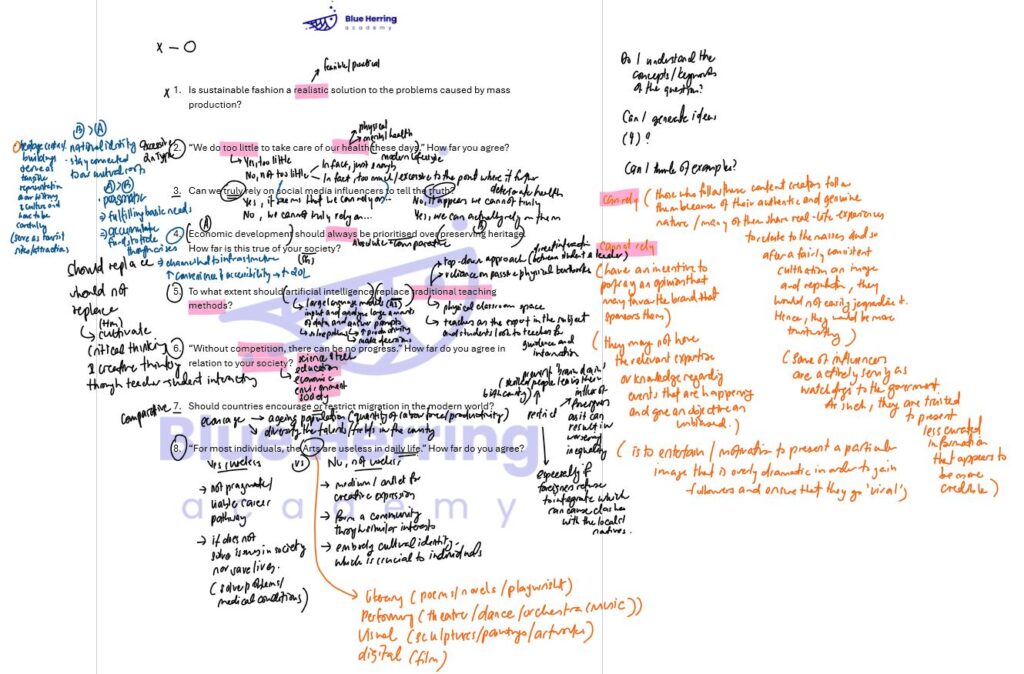 Blue Herring
academy
x – O
feasible/practical
x 1. Is sustainable fashion a realistic solution to the problems caused by mass
production?
physical
mental health
2. “We do too little to take care of our health these days.” How far you agree?
modern lifestyle
Yes, too little
No, not too little
In fact, just enough
In fact, too much/excessive to the point where it
deteriorate health
3. Can we truly rely on social media influencers to tell the truth?
Yes, it seems that we can rely on...
No, we cannot truly rely on...
No, it appears we cannot truly
Yes, we can actually rely on them
(A)
(B)
4. Economic development should always be prioritised over preserving heritage.
How far is this true of your society?
Absolute + comparative
(B) > (A)
national identity
stay connected
to our cultural roots
buildings
serve as
tangible
representation
(serve as tourist
sites/attractions)
(A) > (B)
pragmatic
→ fulfilling basic needs
→ accumulate
funds to tide
through crises
→ channelled to infrastructure
↑ convenience & accessibility → ↑ QOL
5. To what extent should artificial intelligence replace traditional teaching
methods?
should replace
should not
replace
cultivate
critical thinking
& creative thinking
though teacher-student interactions
large language models (AI)
input and analyse large amounts
of data and answer prompts
↑ productivity
make decisions
top-down approach (between student & teacher)
reliance on passive physical worksheets
physical classroom space
teachers as the expert in the subject
and students look to teacher for
guidance and information
6. “Without competition, there can be no progress.” How far do you agree in
relation to your society?
science & tech
education
economic
environment
society
comparative 7. Should countries encourage or restrict migration in the modern world?
encourage → ageing population (quantity of labour force/productivity)
→ diversify the talents/fields in the country
restrict
prevent 'brain drain'
(skilled people leaving their
birth country)
influx of
foreigners
as it can
result in
worsening
inequality
especially if
foreigners refuse
to integrate which
can cause clashes
with the locals/
natives.
8. “For most individuals, the Arts are useless in daily life.” How far do you agree?
Yes, useless
vs
No, not useless
→ not pragmatic/
viable career
pathway
→ it does not
solve issues in society
nor save lives.
(solve problems/
medical conditions)
→ medium/outlet for
creative expression
→ form a community
through similar interests
→ embody cultural identity
which is crucial to individuals
literary (poems/novels/playwright)
Performing (theatre/dance/orchestra (music))
Visual (sculptures/paintings/artworks)
digital (film)
Do I understand the
concepts/keywords
of the question?
Can I generate ideas
(4)?
Can I think of examples?
can rely
(those who follow these content creators follow
them because of their authentic and genuine
nature / many of them share real-life experiences
to relate to the masses and so
after a fairly consistent
cultivation an image
and reputation, they
would not easily jeopardise it.
Hence, they would be more
trustworthy)
(some of influencers
are actively serving as
watchdogs to the government
As such, they are trusted
to present
less curated
information
that appears to
be more
credible)
cannot rely
(have an incentive to
portray an opinion that
may favour the brand that
sponsors them)
(they may not have
the relevant expertise
or knowledge regarding
events that are happening
and give an objective and
unbiased.)
(is to entertain / motivation to present a particular
image that is overly dramatic in order to gain
followers and ensure that they go 'viral')
Blue Herring
academy